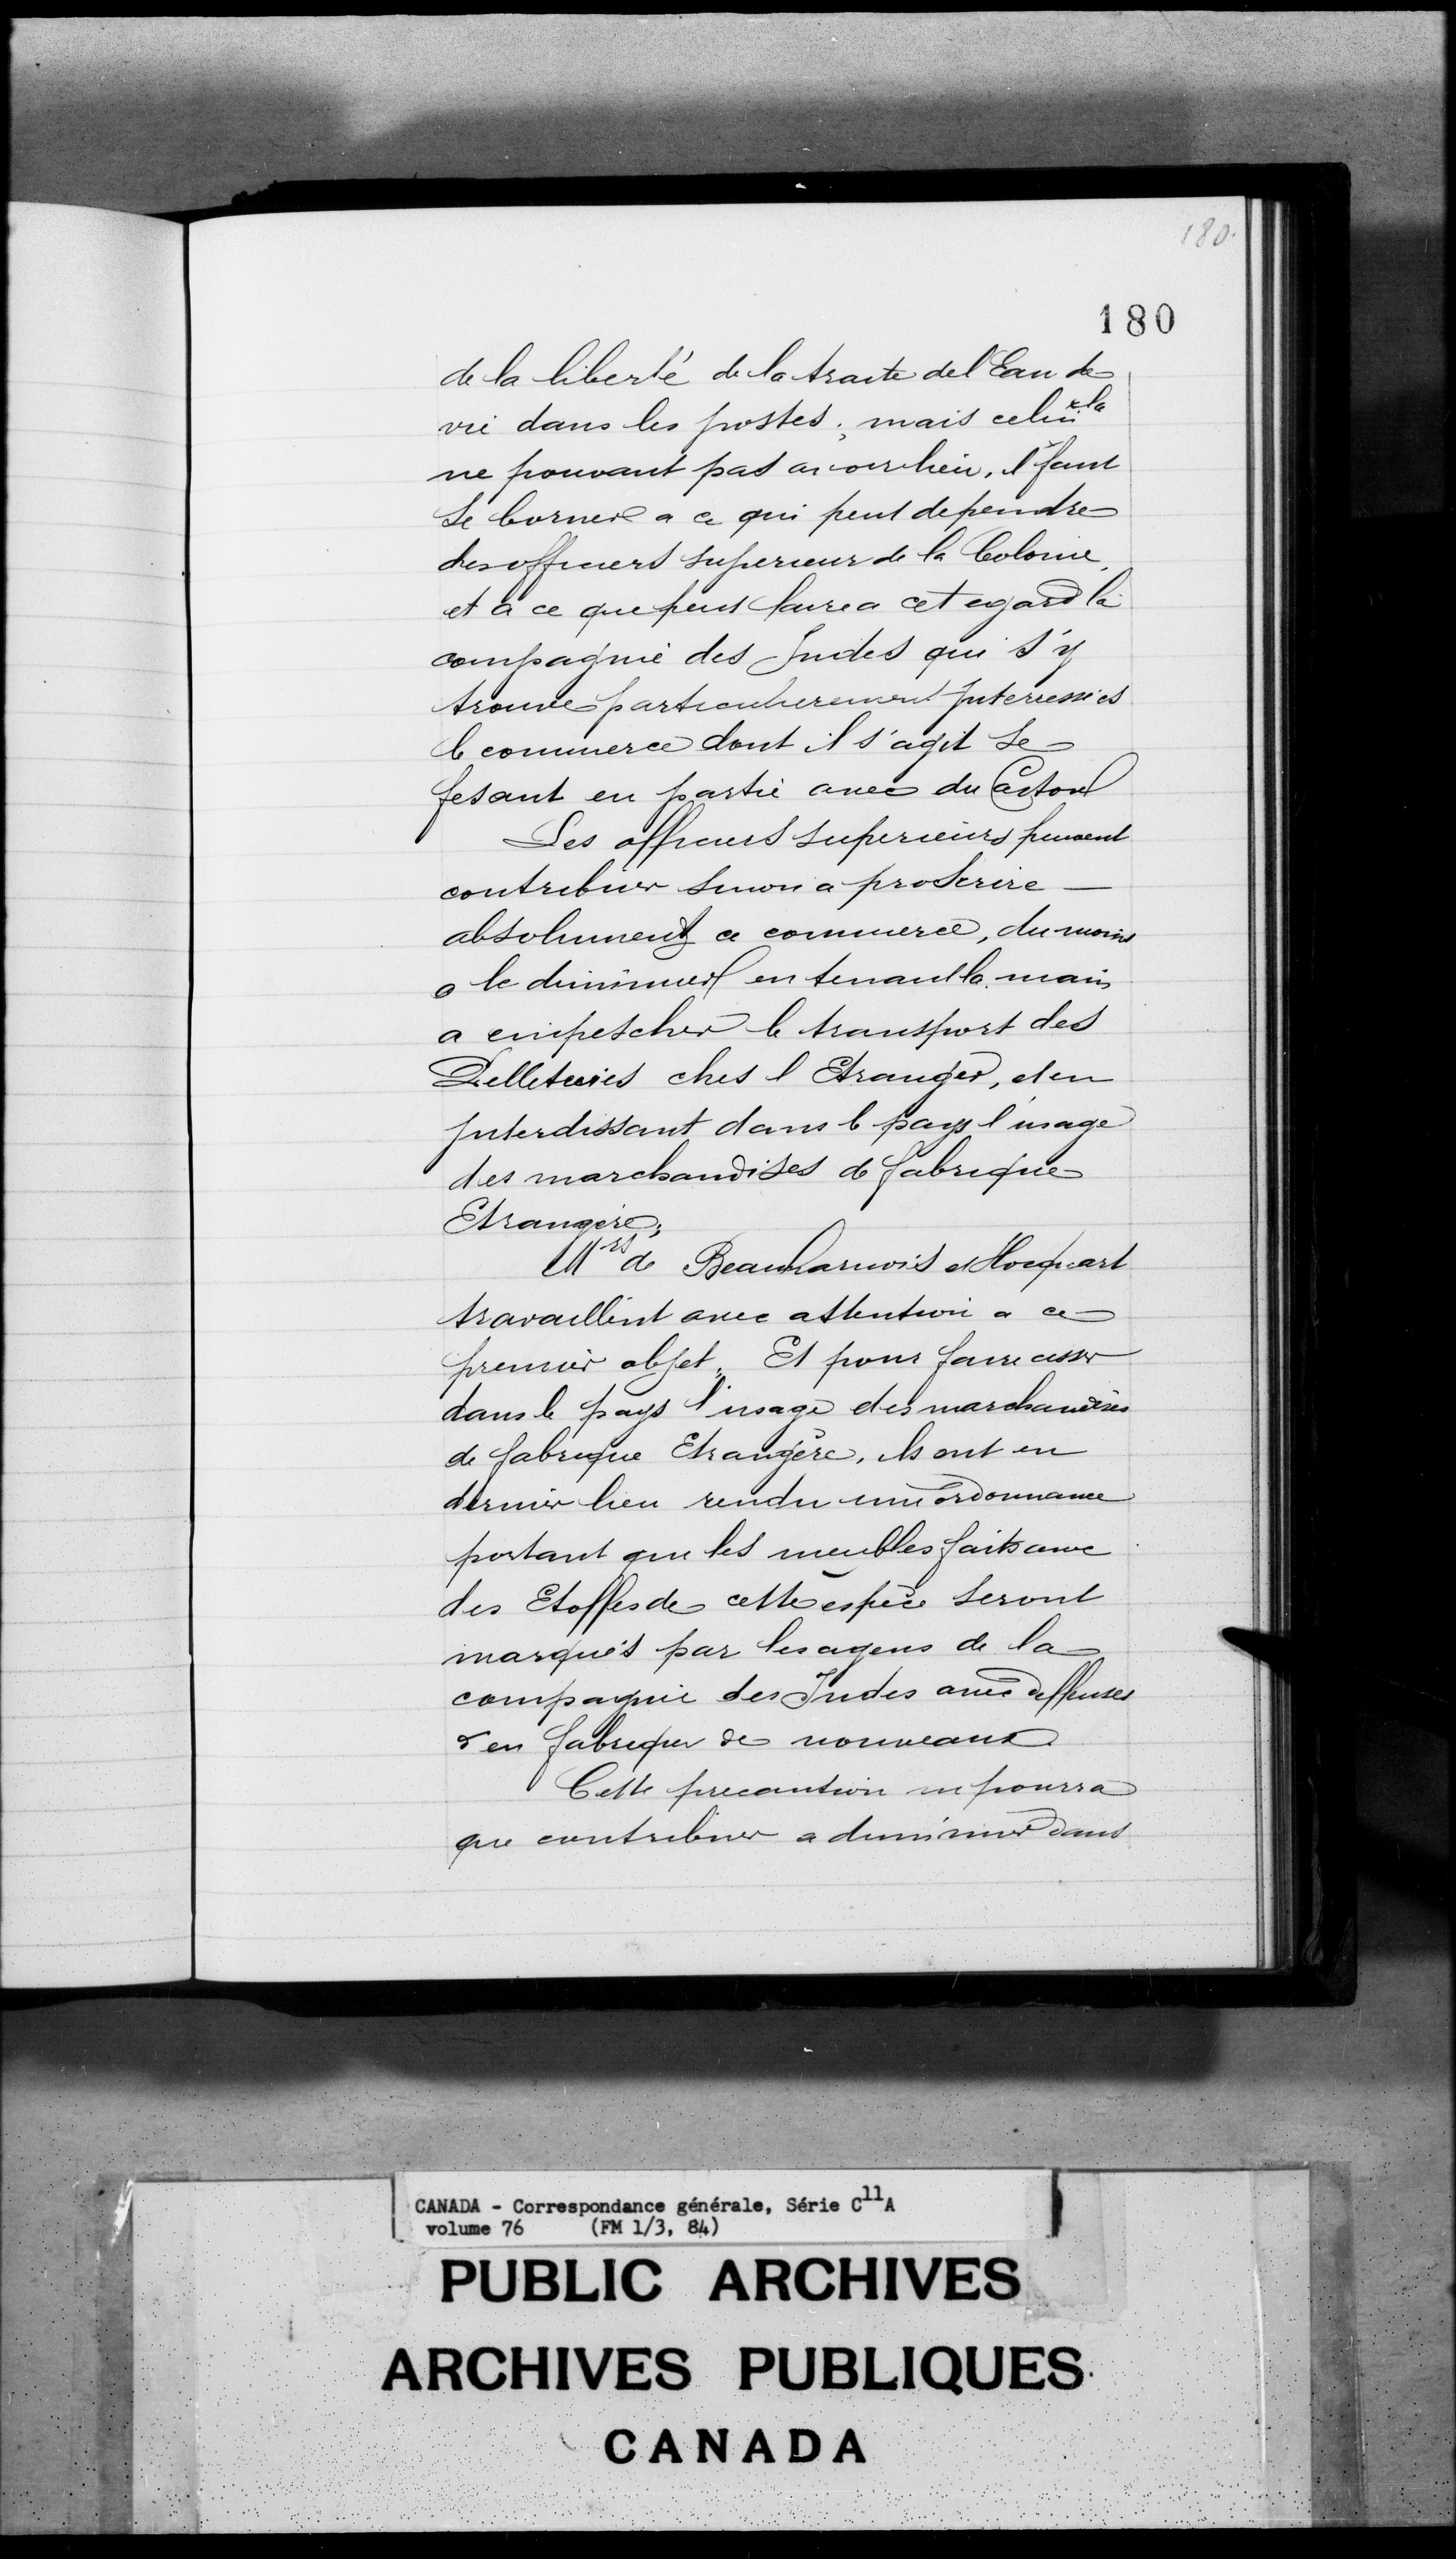 180.
180
de la liberté de la traite del Eau de
vie dans les postes; mais celui la
ne pouvant pas avoir lieu, il faut
se borner a ce qui peut dependre
des officiers superieur de la Colonie,
et à ce que peut faire a cet egard la
compagnie des Indes qui s'y
trouve particulierement Interessées
le commerce dont il s'agit se
fesant en partie avec du Castor
Les officiers superieurs peuvent
contribuer sinon a proscrire —
absolument ce commerce, du moins
a le diminuer en tenant la main
a empescher le transport des
Pelleteries ches l Etranger, et en
Interdissant dans le pays l'usage
des marchandises de fabrique
Etrangère;
Mrs de Beauharnois et Hocquart
travaillent avec attention a ce
premier objet. Et pour faire cesser
dans le pays l'usage des marchandises
de fabrique Etrangère, ils ont en
dernier lieu rendu une ordonnance
portant que les meubles faits avec
des Etoffes de cette espèce seront
marqués par les agens de la
compagnie des Indes avec deffenses
d en fabriquer de nouveaux
Cette precaution ne pourra
que contribuer a diminuer dans
CANADA - Correspondance générale, Série C11A
volume 76 (FM 1/3, 84)
PUBLIC ARCHIVES
ARCHIVES PUBLIQUES
CANADA